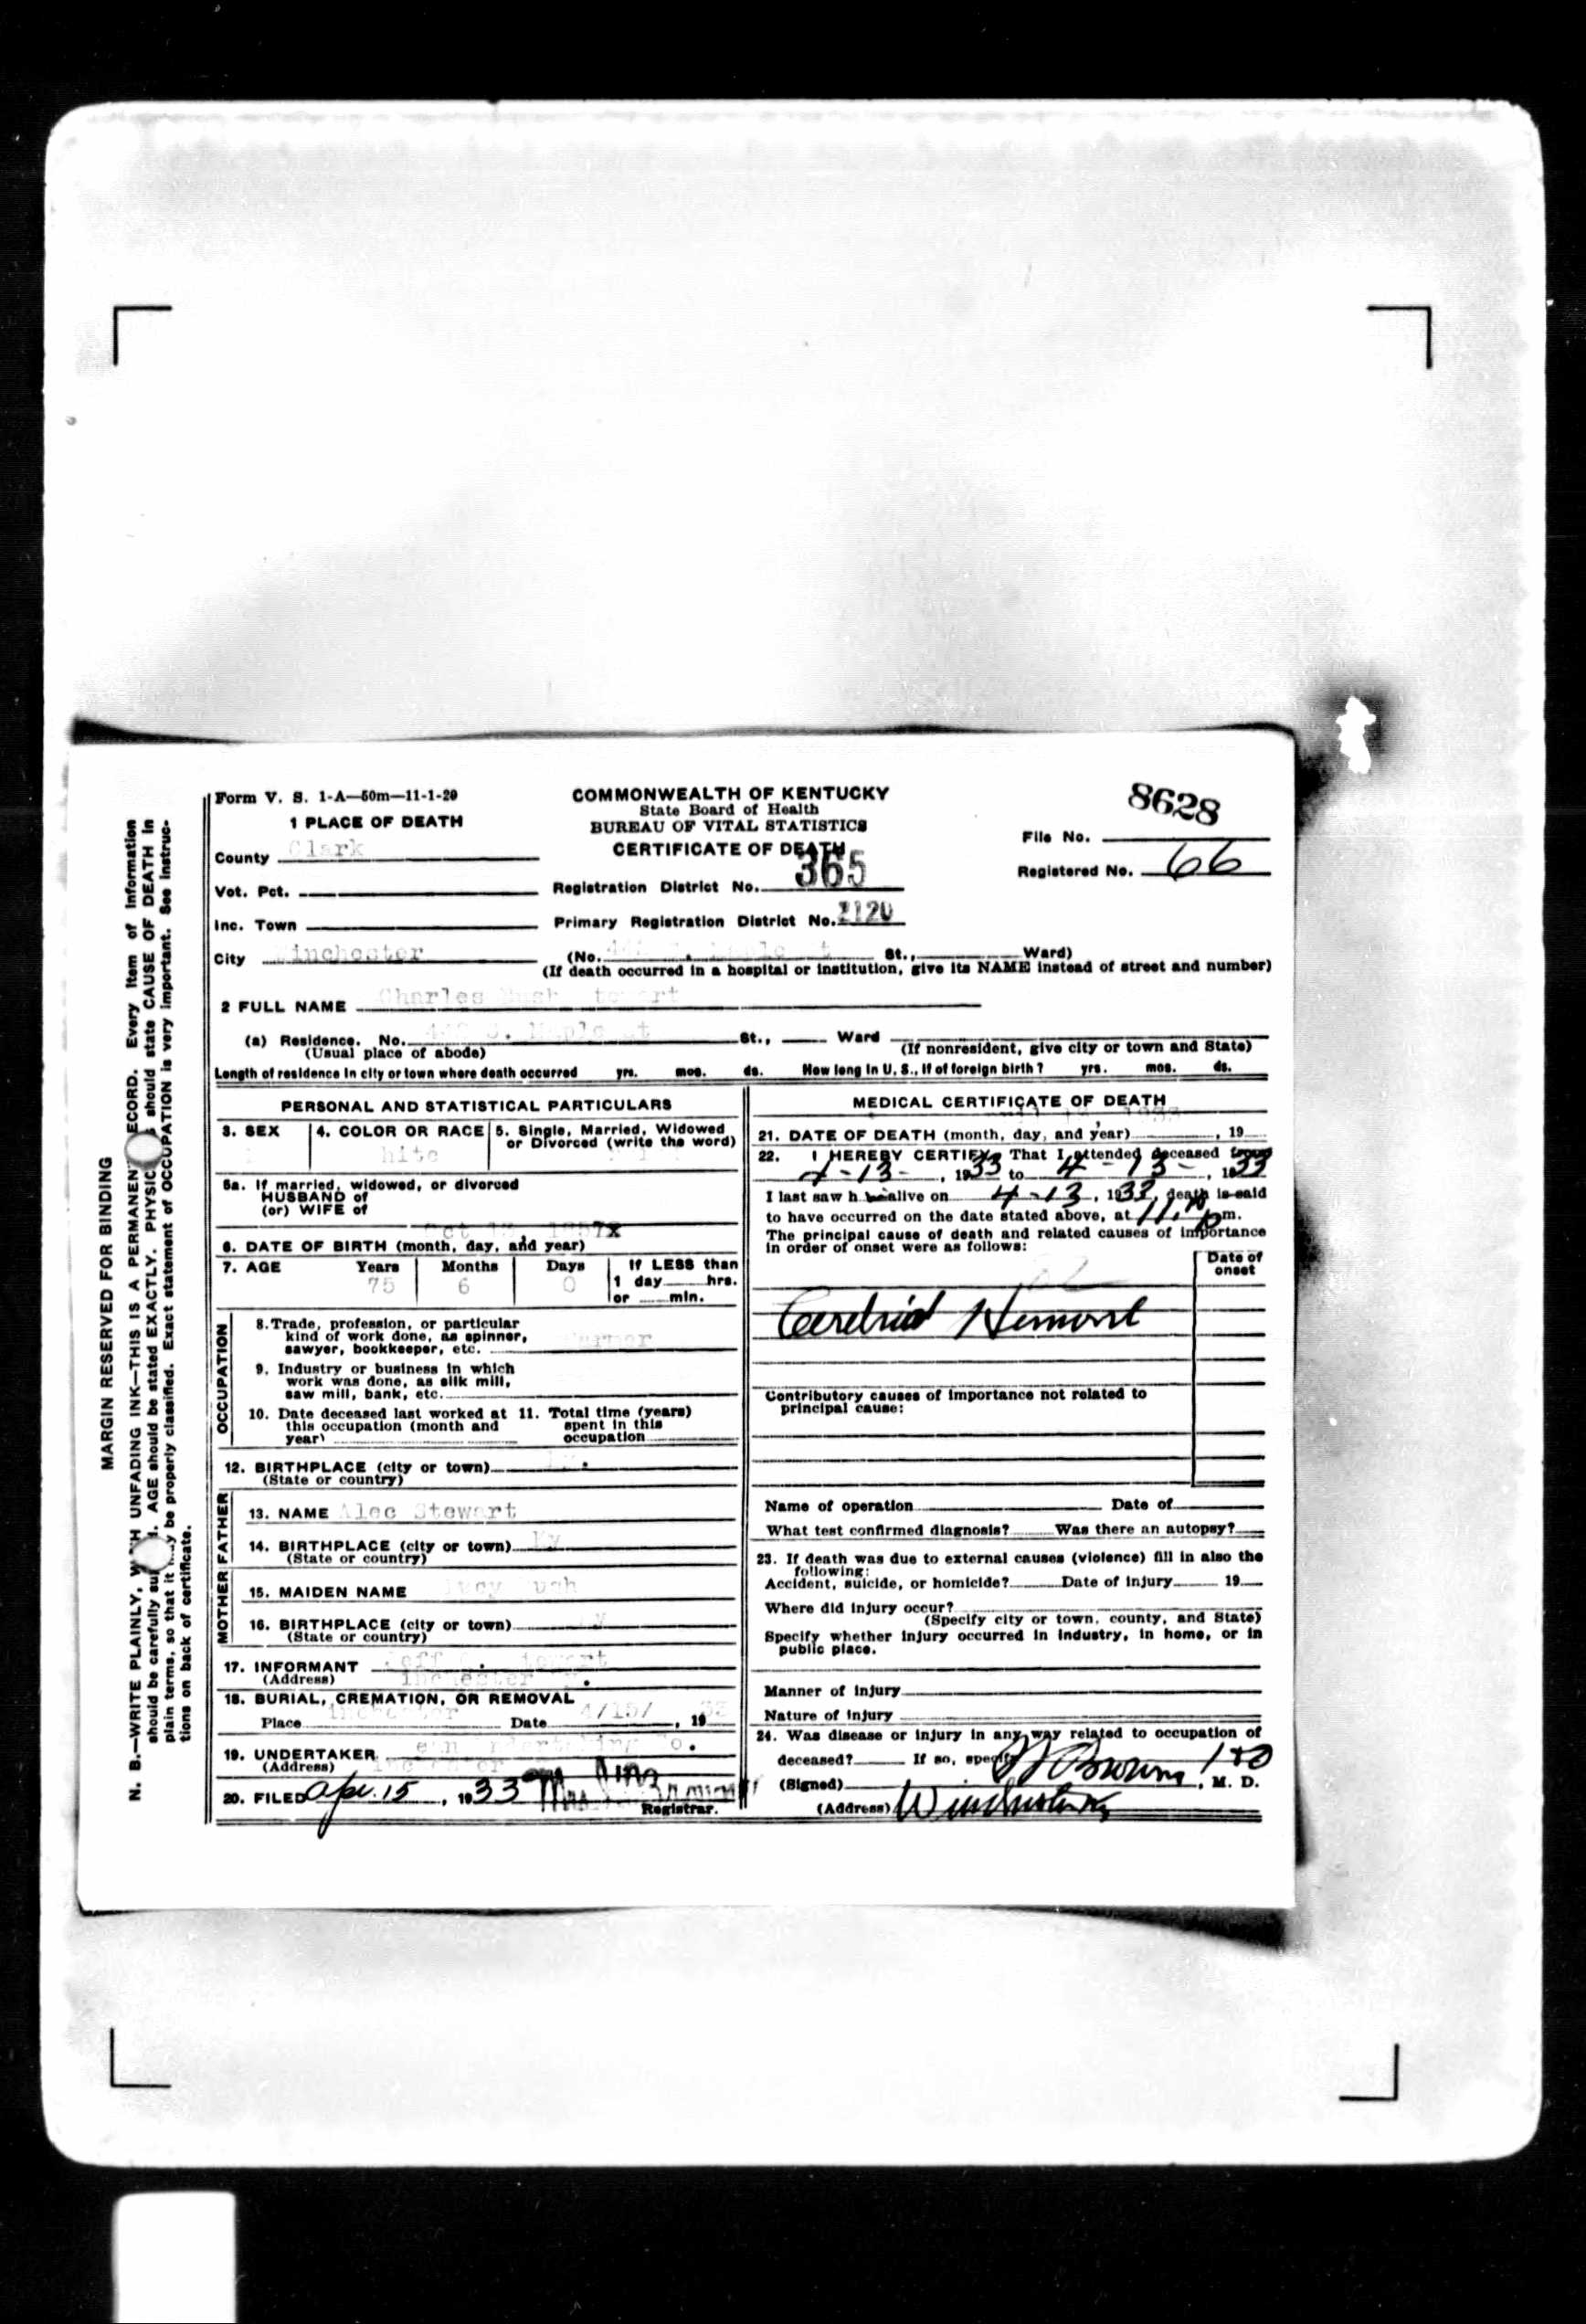 MARGIN RESERVED FOR BINDING
N. B.—WRITE PLAINLY, WITH UNFADING INK—THIS IS A PERMANENT RECORD. Every item of Information
should be carefully AGE should be stated EXACTLY. PHYSIC should state CAUSE OF DEATH in
plain terms, so that it may be properly classified. Exact statement of OCCUPATION is very important. See instruc-
tions on back of certificate.
Form V. S. 1-A—50m—11-1-29
COMMONWEALTH OF KENTUCKY
State Board of Health
BUREAU OF VITAL STATISTICS
CERTIFICATE OF DEATH
8628
File No.
Registered No. 66
1 PLACE OF DEATH
County Clark
Vot. Pct.
Registration District No. 365
Inc. Town
Primary Registration District No.
City Winchester (No. St., Ward)
(If death occurred in a hospital or institution, give its NAME instead of street and number)
2 FULL NAME Charles
(a) Residence. No. S. Maple St St., Ward
(Usual place of abode) (If nonresident, give city or town and State)
Length of residence in city or town where death occurred yrs. mos. ds. How long in U. S., if of foreign birth? yrs. mos. ds.
PERSONAL AND STATISTICAL PARTICULARS
3. SEX 4. COLOR OR RACE 5. Single, Married, Widowed
or Divorced (write the word)
hite
5a. If married, widowed, or divorced
HUSBAND of
(or) WIFE of
6. DATE OF BIRTH (month, day, and year)
7. AGE Years Months Days If LESS than
75 6 0 1 day hrs.
or min.
OCCUPATION
8. Trade, profession, or particular
kind of work done, as spinner,
sawyer, bookkeeper, etc.
9. Industry or business in which
work was done, as silk mill,
saw mill, bank, etc.
10. Date deceased last worked at 11. Total time (years)
this occupation (month and spent in this
year) occupation
12. BIRTHPLACE (city or town)
(State or country)
FATHER
13. NAME Alec Stewart
14. BIRTHPLACE (city or town) Ky
(State or country)
MOTHER
15. MAIDEN NAME
16. BIRTHPLACE (city or town)
(State or country)
17. INFORMANT
(Address)
18. BURIAL, CREMATION, OR REMOVAL
Place Date 4/15/ , 19
19. UNDERTAKER
(Address)
20. FILED Apr. 15, 1933 Mrs
Registrar.
MEDICAL CERTIFICATE OF DEATH
21. DATE OF DEATH (month, day, and year) , 19
22. I HEREBY CERTIFY, That I attended deceased from
4-13-, 1933 to 4-13-, 1933
I last saw h alive on 4-13, 1933, death is said
to have occurred on the date stated above, at m.
The principal cause of death and related causes of importance
in order of onset were as follows:
Date of
onset
Contributory causes of importance not related to
principal cause:
Name of operation Date of
What test confirmed diagnosis? Was there an autopsy?
23. If death was due to external causes (violence) fill in also the
following:
Accident, suicide, or homicide? Date of injury 19
Where did injury occur?
(Specify city or town, county, and State)
Specify whether injury occurred in industry, in home, or in
public place.
Manner of injury
Nature of injury
24. Was disease or injury in any way related to occupation of
deceased? If so, specify
(Signed) , M. D.
(Address)